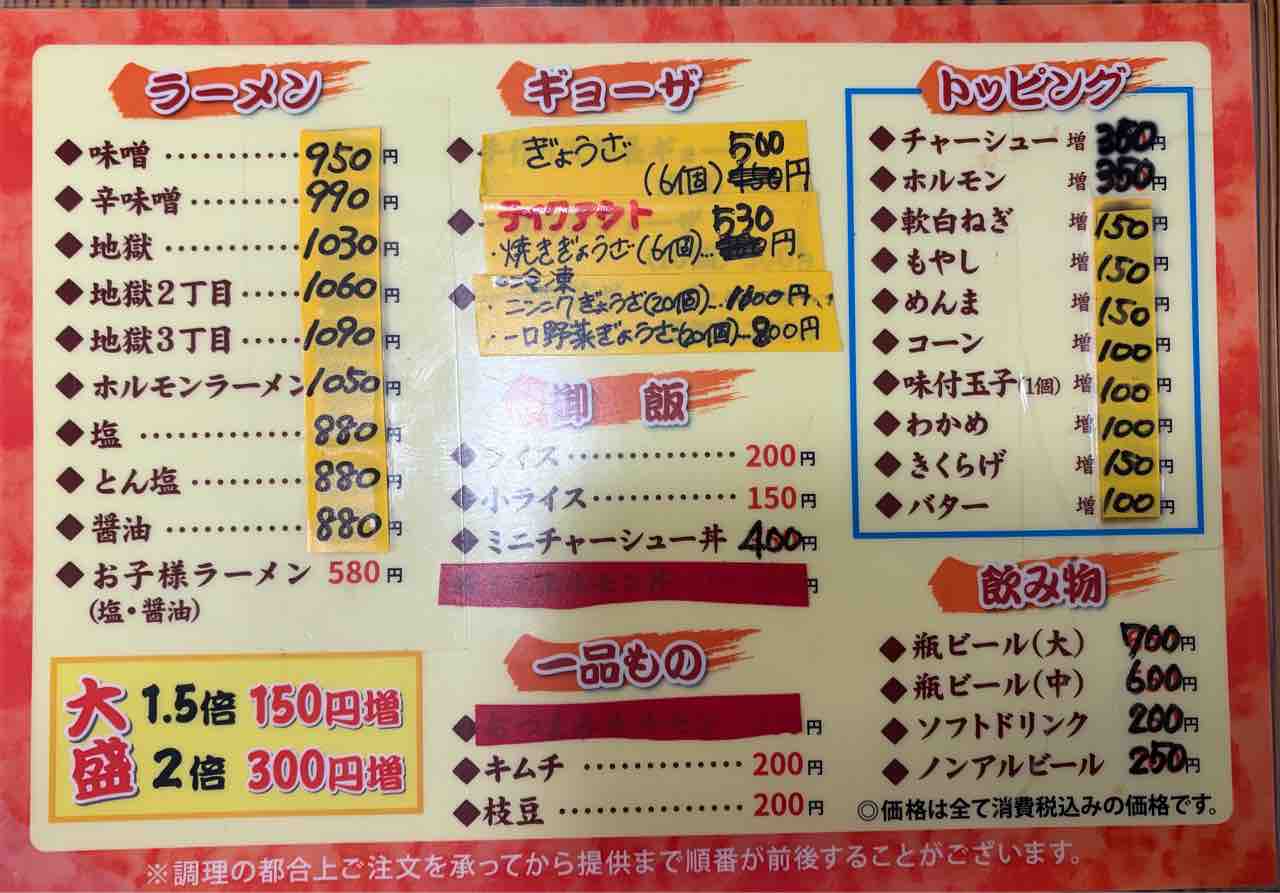 ラーメン
◆味噌 ………… 950円
◆辛味噌 ……… 990円
◆地獄 ………… 1030円
◆地獄２丁目 …… 1060円
◆地獄３丁目 …… 1090円
◆ホルモンラーメン 1050円
◆塩 ………… 880円
◆とん塩 ……… 880円
◆醤油 ………… 880円
◆お子様ラーメン 580円
(塩・醤油)
大盛
1.5倍 150円増
2倍 300円増
ギョーザ
ぎょうざ 500
(6個) 円
テイクアウト 530
・焼きぎょうざ(6個)… 円
冷凍
ニンニクぎょうざ(20個)…1600円
一口野菜ぎょうざ(20個)…800円
御飯
◆ライス ………… 200円
◆小ライス ………… 150円
◆ミニチャーシュー丼 400円
円
一品もの
円
◆キムチ ………… 200円
◆枝豆 ………… 200円
トッピング
◆チャーシュー 増 350円
◆ホルモン 増 350円
◆軟白ねぎ 増 150円
◆もやし 増 150円
◆めんま 増 150円
◆コーン 増 100円
◆味付玉子(1個) 増 100円
◆わかめ 増 100円
◆きくらげ 増 150円
◆バター 増 100円
飲み物
◆瓶ビール(大) 700円
◆瓶ビール(中) 600円
◆ソフトドリンク 200円
◆ノンアルビール 250円
◎価格は全て消費税込みの価格です。
※調理の都合上ご注文を承ってから提供まで順番が前後することがございます。